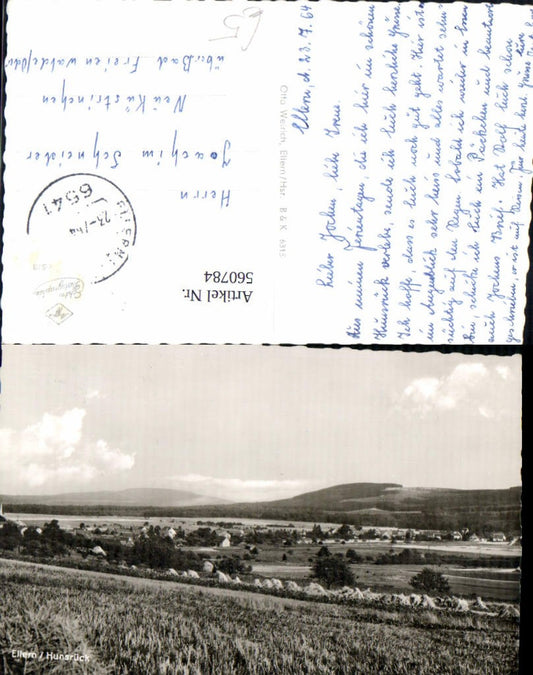 Ellern, d. 23.7.64
Lieber Jochen, liebe Irma.
Aus meinen Ferientagen, die ich hier im schönen
Hunsrück verlebe, sende ich Euch herzliche Grüße
Ich hoffe, dass es Euch noch gut geht. Hier ist es
im Augenblick sehr heiss und alles wartet sehn
süchtig auf den Regen. Sobald ich wieder in
bin schicke ich Euch ein Päckchen und beantworte
auch Jochens Brief. Hat Rolf Euch schon
geschrieben, er ist auf
Otto Weirich, Ellern/Hsr. B & K 6315
Herrn
Joachim Schneider
Neu Küstrinchen
über Bad Freienwalde/Oder
ELLERN
6541
23.-7.64
Artikel Nr.
560784
Ellern / Hunsrück